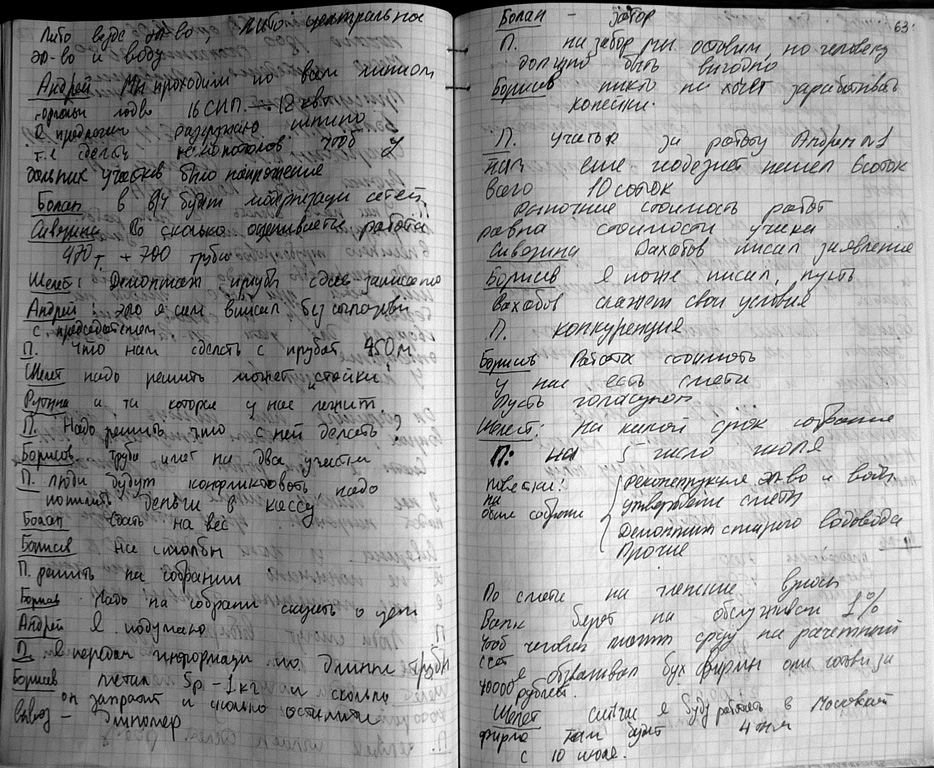 Либо везде эл-во, либо центрально
эл-во и воду
Андрей Мы проходили по всем линиям
16 СИП. — 18 квт
Я предлогаю разгружаю
т.е. сделать чтоб у
дальних участков было напряжение
Болан в 614 будет модернизаци сетей.
Сивозина Во сколько оценивается работа
970 т. + 700 трубы
Шелет: Демонтаж трубы здесь записано
Андрей: это я сам вписал без согласован
с председателем
П. Что нам сделать с трубой 450 м
Шелет надо решить может стойки!
и та которая у нас лежит
П. Надо решить что с ней делать?
Борисов труба идет на два участка
П. люди будут конфликтовать надо
деньги в кассу
Болан Сдать на вес
Борисов На столбы
П. решить на собрании
Борисов Надо на собрани сказать о цене
Андрей Я подумаю
П. Я передам информаци по длинне трубы
Борисов метал 5р – 1 кг и сколько
он запросит и сколько останется
Вывоз –
Болан – забор
П. на забор мы оставим, но человеку
должно быть выгодно
Борисов никто не хочет зарабатывать
копейки.
П. участок за работу Андрей №1
там еще подъезд 6 соток
всего 10 соток
Рыночная стоимость работ
равна стоимости участка
Сивозина Вахабов писал заявление
Борисов я тоже писал, пусть
Вахабов скажет свои условия
П. конкуренция
Борисов Работа стоимость
у нас есть сметы
Пусть голосуют
Шелест: На какой срок собрание
П: на 5 число июля
повестки! Реконструкция эл-во и воды
на утверждени сметы
общие собрания Демонтаж старого водовода
Прочие
По смете на членские взносы
Банк берет на обслуживан 1%
Чтоб человек платил сразу на расчетный
счет я обзванивал бух фирмы они готовы за
40000 рублей.
Шелет сейчас я буду работать в Москов
фирма там будет
с 10 июля.
63